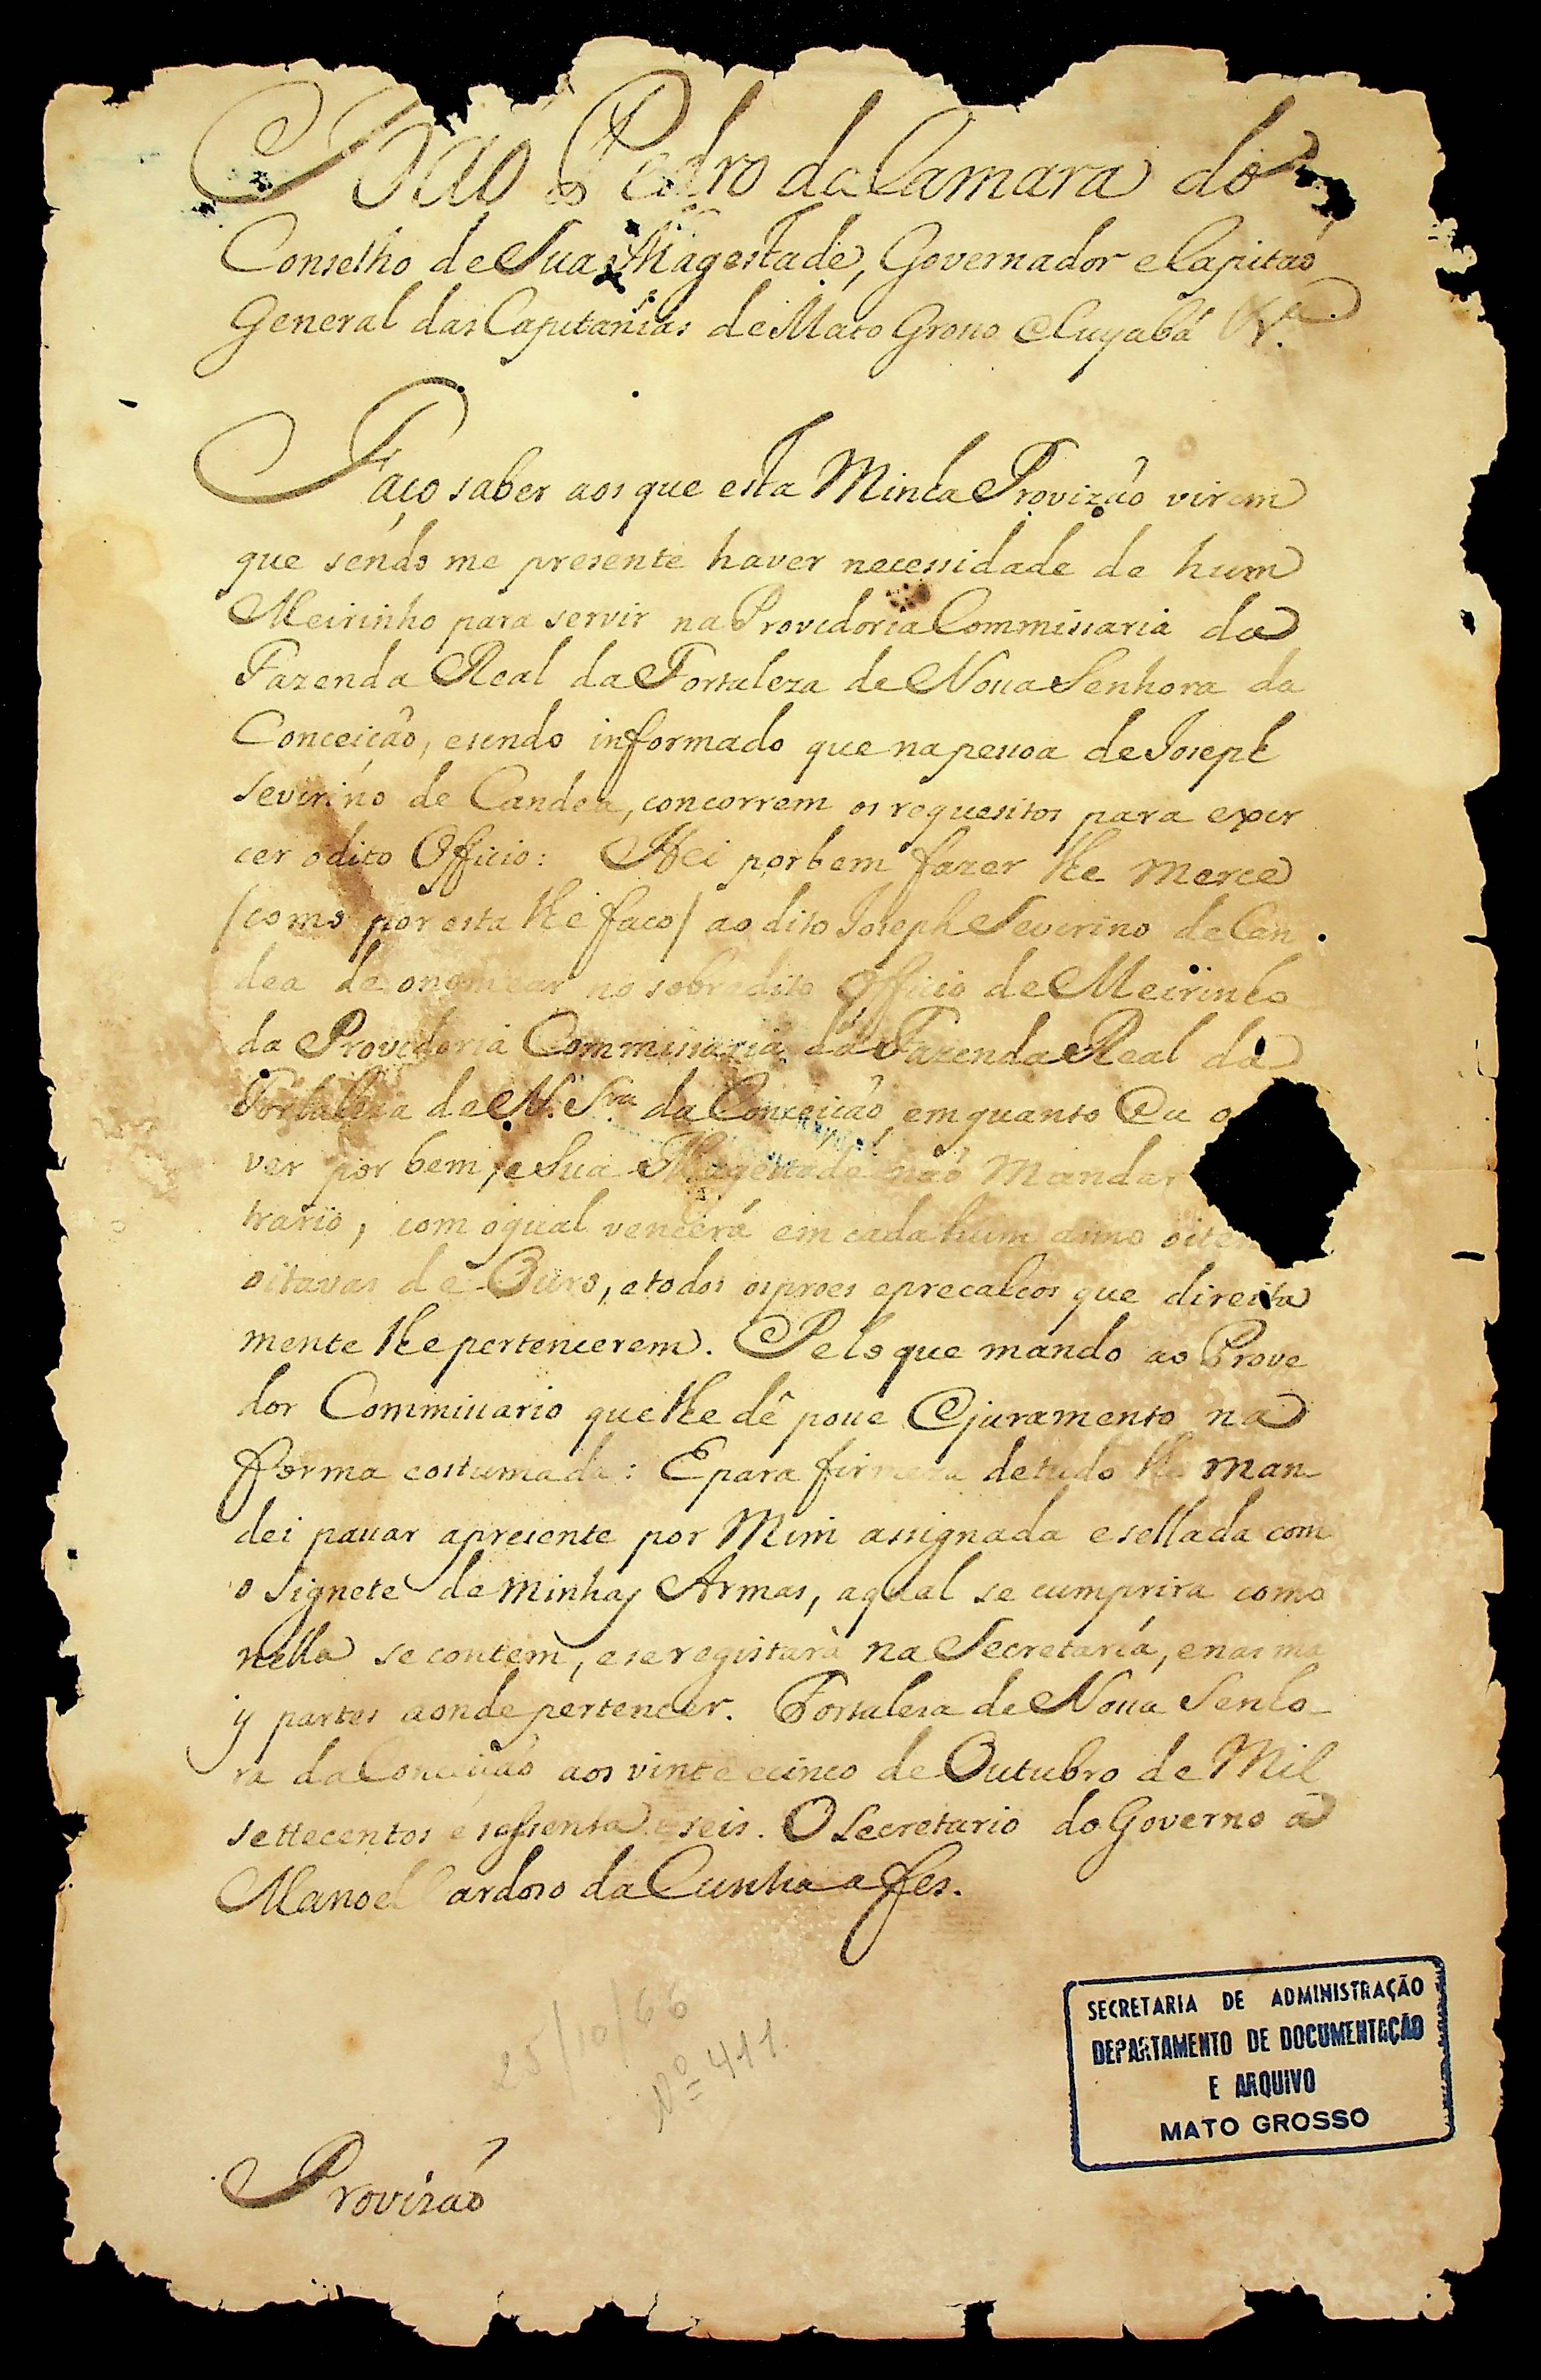 João Pedro da Camara do
Conselho de Sua Magestade, Governador e Capitaõ
General das Capitanîas de Mato Grosso e Cuyabá &ª.
Faço saber aos que esta Minha Provizaõ virem
que sendo me presente haver necessidade de hum
Meirinho para servir na Provedoria Commissaria da
Fazenda Real da Fortaleza de Nossa Senhora da
Conceiçaõ, e sendo informado que na pessoa de Joseph
Severino de Candea, concorrem os requesitos para exer
cer o dito Officio: Hei por bem fazer lhe Merce
/como por esta lhe faço/ ao dito Joseph Severino de Can
dea de o nomear no sobredito Officio de Meirinho
da Provedoria Commissaria da Fazenda Real da
Fortaleza de N. Sra da Conceiçaõ, emquanto Eu o
ver por bem, e Sua Magestade naõ Mandar
trario, com o qual vencerá em cada hum anno oite
oitavas de Ouro, e todos os proes e precalços que direita
mente lhe pertencerem. Pelo que mando ao Prove
dor Commissario que lhe dê posse e juramento na
forma costumada: E para firmeza de tudo lhe man
dei passar a presente por Mim assignada e sellada com
o signete de minhas Armas, a qual se cumprira como
nella se contem, e se registará na Secretaria, e nas ma
is partes aonde pertencer. Fortaleza de Nossa Senho
ra da Conceiçaõ aos vinte e cinco de Outubro de Mil
settecentos e sessenta e seis. O Secretario do Governo
Manoel Cardoso da Cunha a fes.
25/10/66
Nº 411.
SECRETARIA DE ADMINISTRAÇÃO
DEPARTAMENTO DE DOCUMENTAÇÃO
E ARQUIVO
MATO GROSSO
Provizaõ